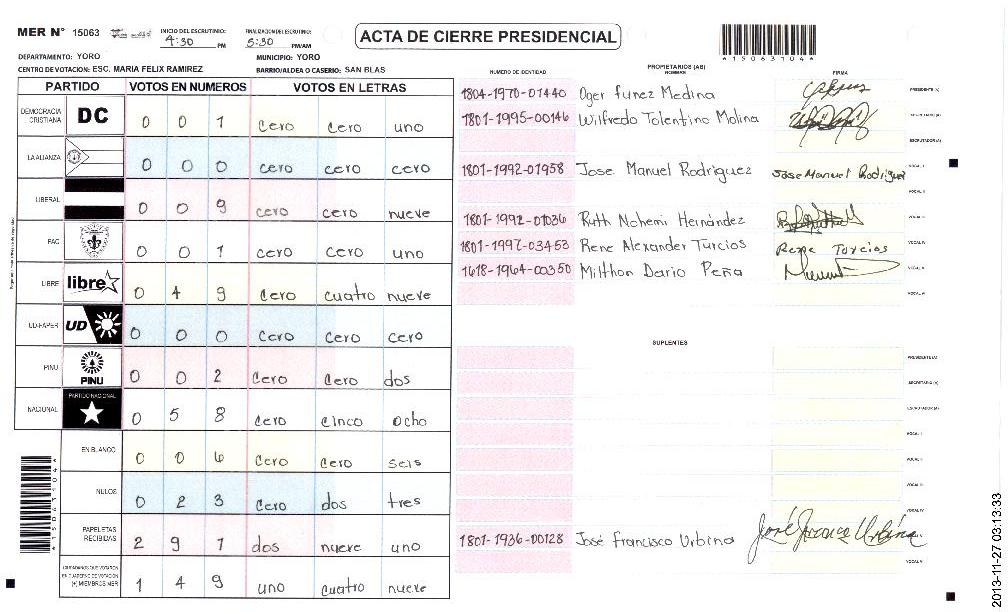 MER N° 15063
INICIO DEL ESCRUTINIO: 4:30 PM
FINALIZACION DEL ESCRUTINIO: 5:30 PM/AM
ACTA DE CIERRE PRESIDENCIAL
*15063104*
DEPARTAMENTO: YORO
MUNICIPIO: YORO
CENTRO DE VOTACION: ESC. MARIA FELIX RAMIREZ
BARRIO/ALDEA O CASERIO: SAN BLAS
PARTIDO VOTOS EN NUMEROS VOTOS EN LETRAS
DEMOCRACIA CRISTIANA DC 0 0 1 cero cero uno
LA ALIANZA 0 0 0 cero cero cero
LIBERAL 0 0 9 cero cero nueve
PAC 0 0 1 cero cero uno
LIBRE libre 0 4 9 cero cuatro nueve
UD-FAPER UD 0 0 0 cero cero cero
PINU PINU 0 0 2 cero cero dos
NACIONAL PARTIDO NACIONAL 0 5 8 cero cinco ocho
EN BLANCO 0 0 6 cero cero seis
NULOS 0 2 3 cero dos tres
PAPELETAS RECIBIDAS 2 9 1 dos nueve uno
CIUDADANOS QUE VOTARON EN CUADERNO DE VOTACION (+) MIEMBROS MER 1 4 9 uno cuatro nueve
*15063104*
PROPIETARIOS (AS)
NUMERO DE IDENTIDAD NOMBRE FIRMA
1804-1970-01440 Oger Funez Medina PRESIDENTE (A)
1801-1995-00146 Wilfredo Tolentino Molina SECRETARIO (A)
ESCRUTADOR (A)
1801-1992-01958 Jose Manuel Rodriguez Jose Manuel Rodriguez VOCAL I
VOCAL II
1801-1992-01036 Ruth Nohemi Hernández VOCAL III
1801-1997-03453 Rene Alexander Turcios Rene Turcios VOCAL IV
1618-1964-00350 Milthon Dario Peña VOCAL V
VOCAL VI
SUPLENTES
PRESIDENTE (A)
SECRETARIO (A)
ESCRUTADOR (A)
VOCAL I
VOCAL II
VOCAL III
VOCAL IV
1801-1936-00128 José Francisco Urbina José Franco Urbina
VOCAL VI
2013-11-27 03:13:33